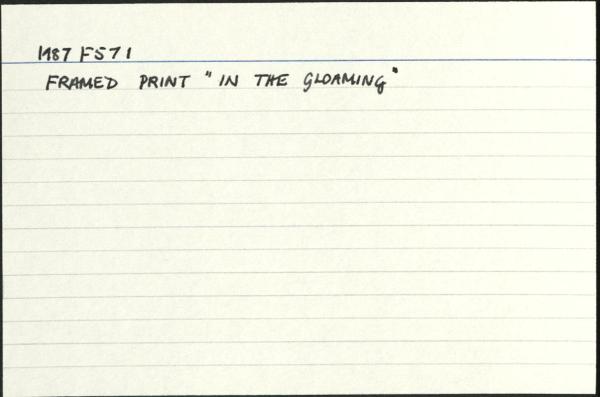 1987 F571
FRAMED PRINT "IN THE GLOAMING"